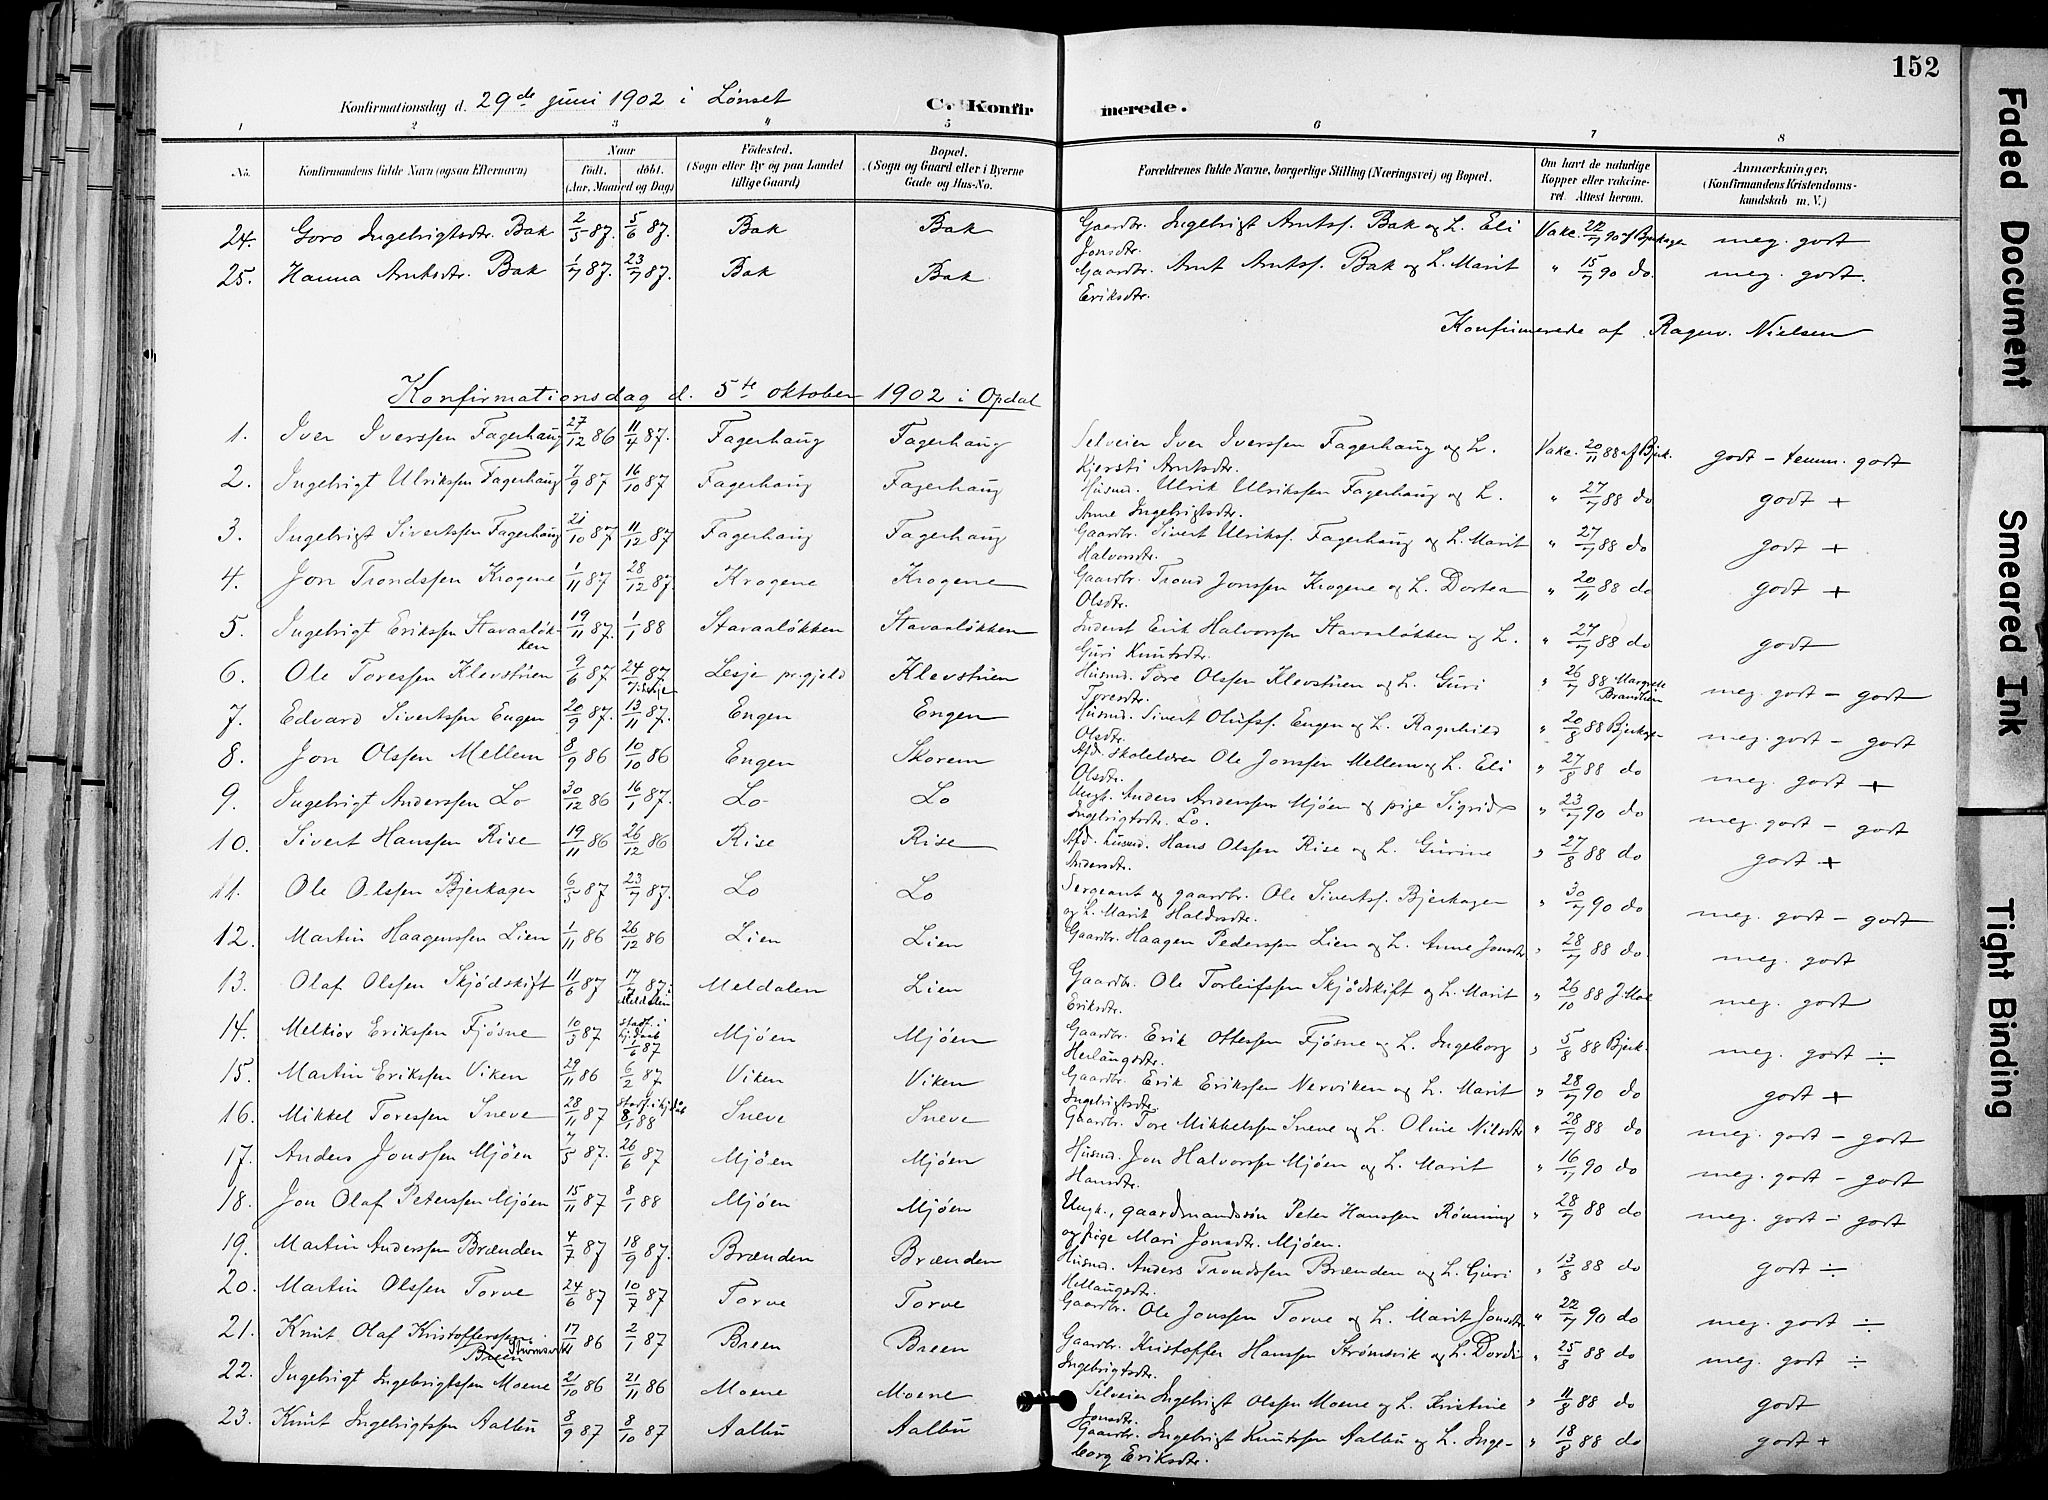 152
Konfirmationsdag d. 29de juni 1902 i Lønset C. Konfirmerede.
1 2 3 4 5 6 7 8
No. Konfirmandens fulde Navn (ogsaa Efternavn) Naar Født. døbt. (Aar, Maaned og Dag) Fødested. (Sogn eller By og paa Landet tillige Gaard) Bopæl. (Sogn og Gaard eller i Byerne Gade og Hus-No. Forældrenes fulde Navne, borgerlige Stilling (Næringsvei) og Bopæl. Om havt de naturlige Kopper eller vakcineret. Attest herom. Anmærkninger, (Konfirmandens Kristendomskundskab m. V.)
24. Goro Ingebrigtsdtr. Bak 2/5 87. 5/6 87. Bak Bak Gaardbr. Ingebrigt Arntss. Bak og L. Eli Jonsdtr. Vakc. 22/7 90 af Bjerkager meg. godt
25. Hanna Arntsdtr. Bak 1/7 87. 23/7 87. Bak Bak Gaardbr. Arnt Arntss. Bak og L. Marit Eriksdtr. " 15/7 90 do. meg. godt.
Konfirmerede af Ragnv. Nielsen
Konfirmationsdag d. 5te oktober 1902 i Opdal
1. Iver Iverssen Fagerhaug 27/12 86 11/4 87. Fagerhaug Fagerhaug Selveier Iver Iverssen Fagerhaug og L. Kjersti Arntsdtr. Vakc. 20/11 88 af Bjerk. godt - temm. godt
2. Ingebrigt Ulrikssen Fagerhaug 7/9 87 16/10 87 Fagerhaug Fagerhaug Husmd. Ulrik Ulrikssen Fagerhaug og L. Anne Ingebrigtsdtr. " 27/7 88 do godt +
3. Ingebrigt Sivertssen Fagerhaug 21/10 87 11/12 87 Fagerhaug Fagerhaug Gaardbr. Sivert Ulrikss. Fagerhaug og L. Marit Halvorsdtr. " 27/7 88 do godt +
4. Jon Trondssen Krogene 1/11 87 28/12 87. Krogene Krogene Gaardbr. Trond Jonssen Krogene og L. Dortea Olsdtr. " 20/11 88 do godt +
5. Ingebrigt Erikssen Stavaaløkken 19/11 87. 1/1 88 Stavaaløkken Stavaaløkken Inderst Erik Halvorssen Stavaaløkken og L. Guri Knutsdtr. " 27/7 88 do godt
6. Ole Toressen Klevstuen 9/6 87 24/7 87 i Lesje Lesje pr.gjeld Klevstuen Husmd. Tore Olssen Klevstuen og L. Guri Toresdtr. " 26/7 88 Margrete meg. godt - godt
7. Edvard Sivertssen Engen 20/9 87. 13/11 87. Engen Engen Husmd. Sivert Olufss. Engen og L. Ragnhild Olsdtr. " 20/8 88 Bjerkag. meg. godt - godt
8. Jon Olssen Mellem 8/9 86 10/10 86 Engen Skorem Afd. skolelærer Ole Jonssen Mellem og L. Eli Olsdtr. " 27/8 88 do meg. godt +
9. Ingebrigt Anderssen Lo 30/12 86 16/1 87. Lo Lo Ungk. Anders Anderssen Mjøen og pige Sigrid Ingebrigtsdtr. Lo. " 23/7 90 do meg. godt - godt
10. Sivert Hanssen Rise 19/11 86 26/12 86 Rise Rise Afd. husmd. Hans Olssen Rise og L. Gurine Andersdtr. " 27/8 88 do godt +
11. Ole Olssen Bjerkager 6/5 87 23/7 87. Lo Lo Sergeant og gaardbr. Ole Sivertss. Bjerkager og L. Marit Haldosdtr. " 30/7 90 do meg. godt - godt
12. Martin Haagenssen Lien 1/11 86 26/12 86 Lien Lien Gaardbr. Haagen Pederssen Lien og L. Anne Jonsdtr " 28/7 88 do. meg. godt
13. Olaf Olssen Skjødskift 11/6 87 17/7 87. i Meldalen Meldalen Lien Gaardbr. Ole Torleifssen Skjødskift og L. Marit Eriksdtr. " 26/10 88 J. Moe meg. godt
14. Melkior Erikssen Fjøsne 10/3 87 stadf. i hj.daab 1/6 87 Mjøen Mjøen Gaardbr. Erik Ottessen Fjøsne og L. Ingeborg Herlaugsdtr. " 5/8 88 Bjerk. meg. godt ÷
15. Martin Erikssen Viken 29/11 86 6/2 87 Viken Viken Gaardbr. Erik Erikssen Nerviken og L. Marit Ingebrigtsdtr. " 28/7 90 do godt +
16. Mikkel Toressen Sneve 28/11 87 stadf. i hj.daab 8/1 88 Sneve Sneve Gaardbr. Tore Mikkelssen Sneve og L. Oline Nilsdtr " 28/7 88 do meg. godt - godt
17. Anders Jonssen Mjøen 7/5 87. 26/6 87 Mjøen Mjøen Husmd. Jon Halvorssen Mjøen og L. Marit Hansdtr. " 16/7 90 do meg. godt - godt
18. Jon Olaf Peterssen Mjøen 15/11 87 8/1 88 Mjøen Mjøen Ungk., gaardmandssøn Peter Hanssen Rønning og pige Mari Jonsdtr. Mjøen. " 28/7 88 do meg. godt - godt
19. Martin Anderssen Brænden 4/7 87 18/9 87. Brænden Brænden Husmd. Anders Trondssen Brænden og L. Guri Hellaugsdtr. " 13/8 88 do godt ÷
20. Martin Olssen Torve 24/6 87 10/7 87 Torve Torve Gaardbr. Ole Jonssen Torve og L. Marit Jonsdtr " 22/7 90 do meg. godt ÷
21. Knut Olaf Kristofferssen Breen Strømsvik 17/11 86 2/1 87 Breen Breen Gaardbr. Kristoffer Hanssen Strømsvik og L. Dordi Ingebrigtsdtr. " 25/8 88 do meg. godt ÷
22. Ingebrigt Ingebrigtssen Moene 21/10 86 21/11 86 Moene Moene Selveier Ingebrigt Olssen Moene og L. Kristine Jonsdtr. " 11/8 88 do godt
23. Knut Ingebrigtssen Aalbu 8/9 87 8/10 87 Aalbu Aalbu Gaardbr. Ingebrigt Knutssen Aalbu og L. Ingeborg Eriksdtr. " 18/8 88 do godt +
Faded Document
Smeared Ink
Tight Binding